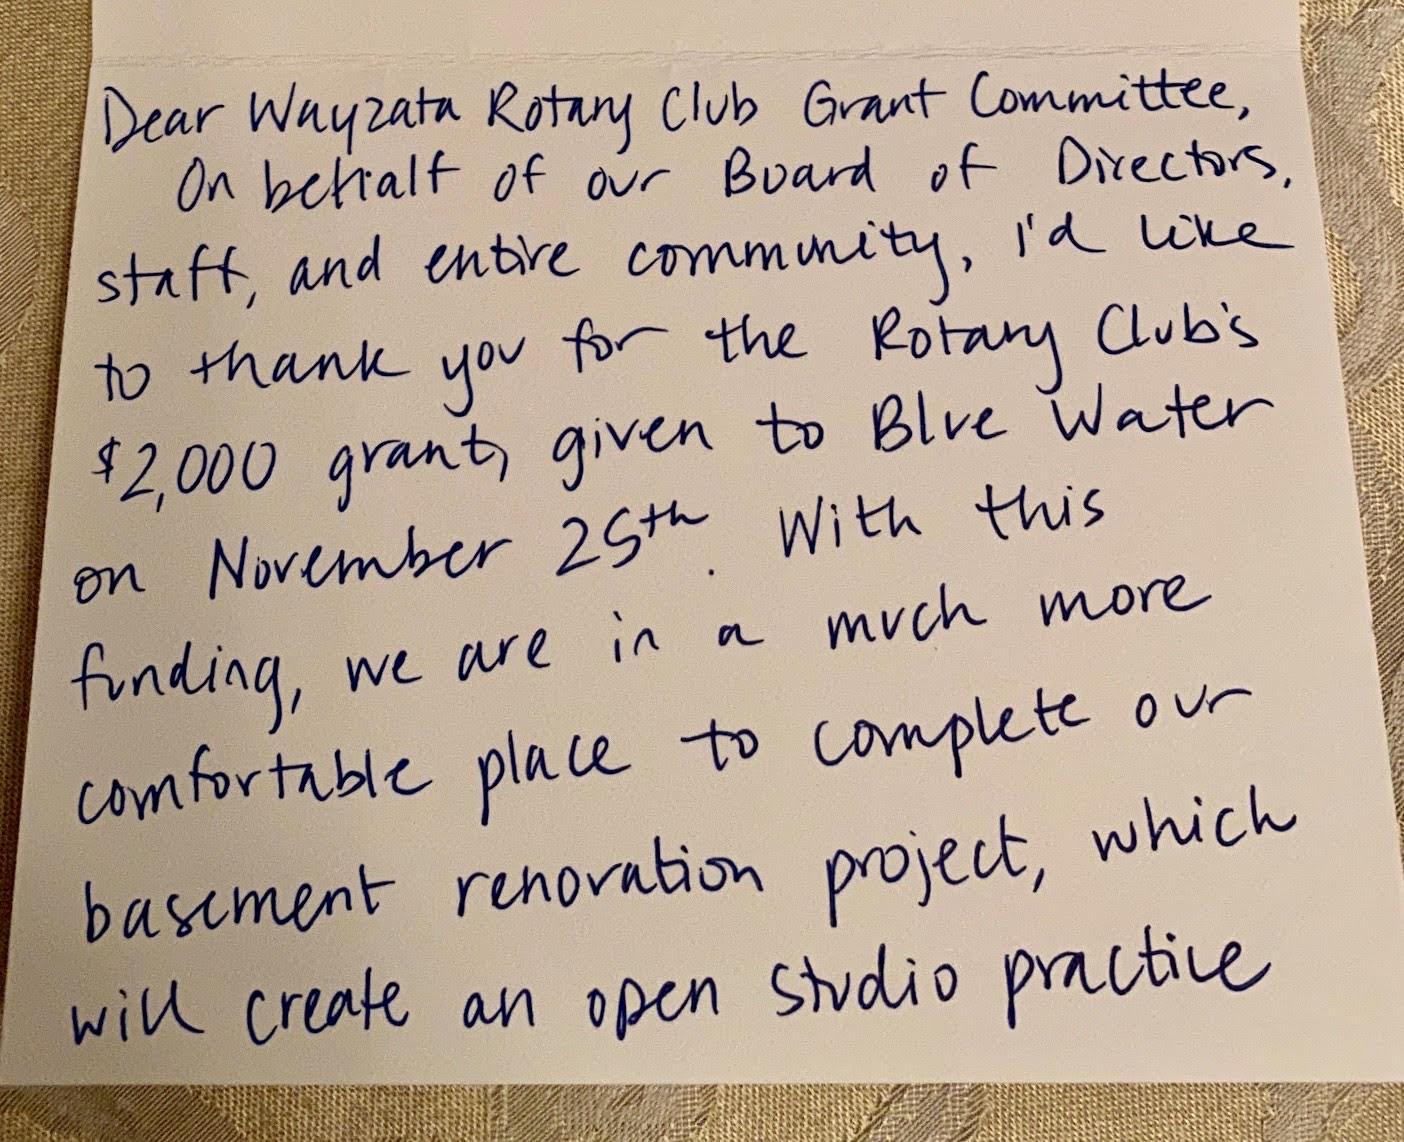 Dear Wayzata Rotary Club Grant Committee,
On behalf of our Board of Directors,
staff, and entire community, I'd like
to thank you for the Rotary Club's
$2,000 grant, given to Blue Water
on November 25th. With this
funding, we are in a much more
comfortable place to complete our
basement renovation project, which
will create an open studio practice